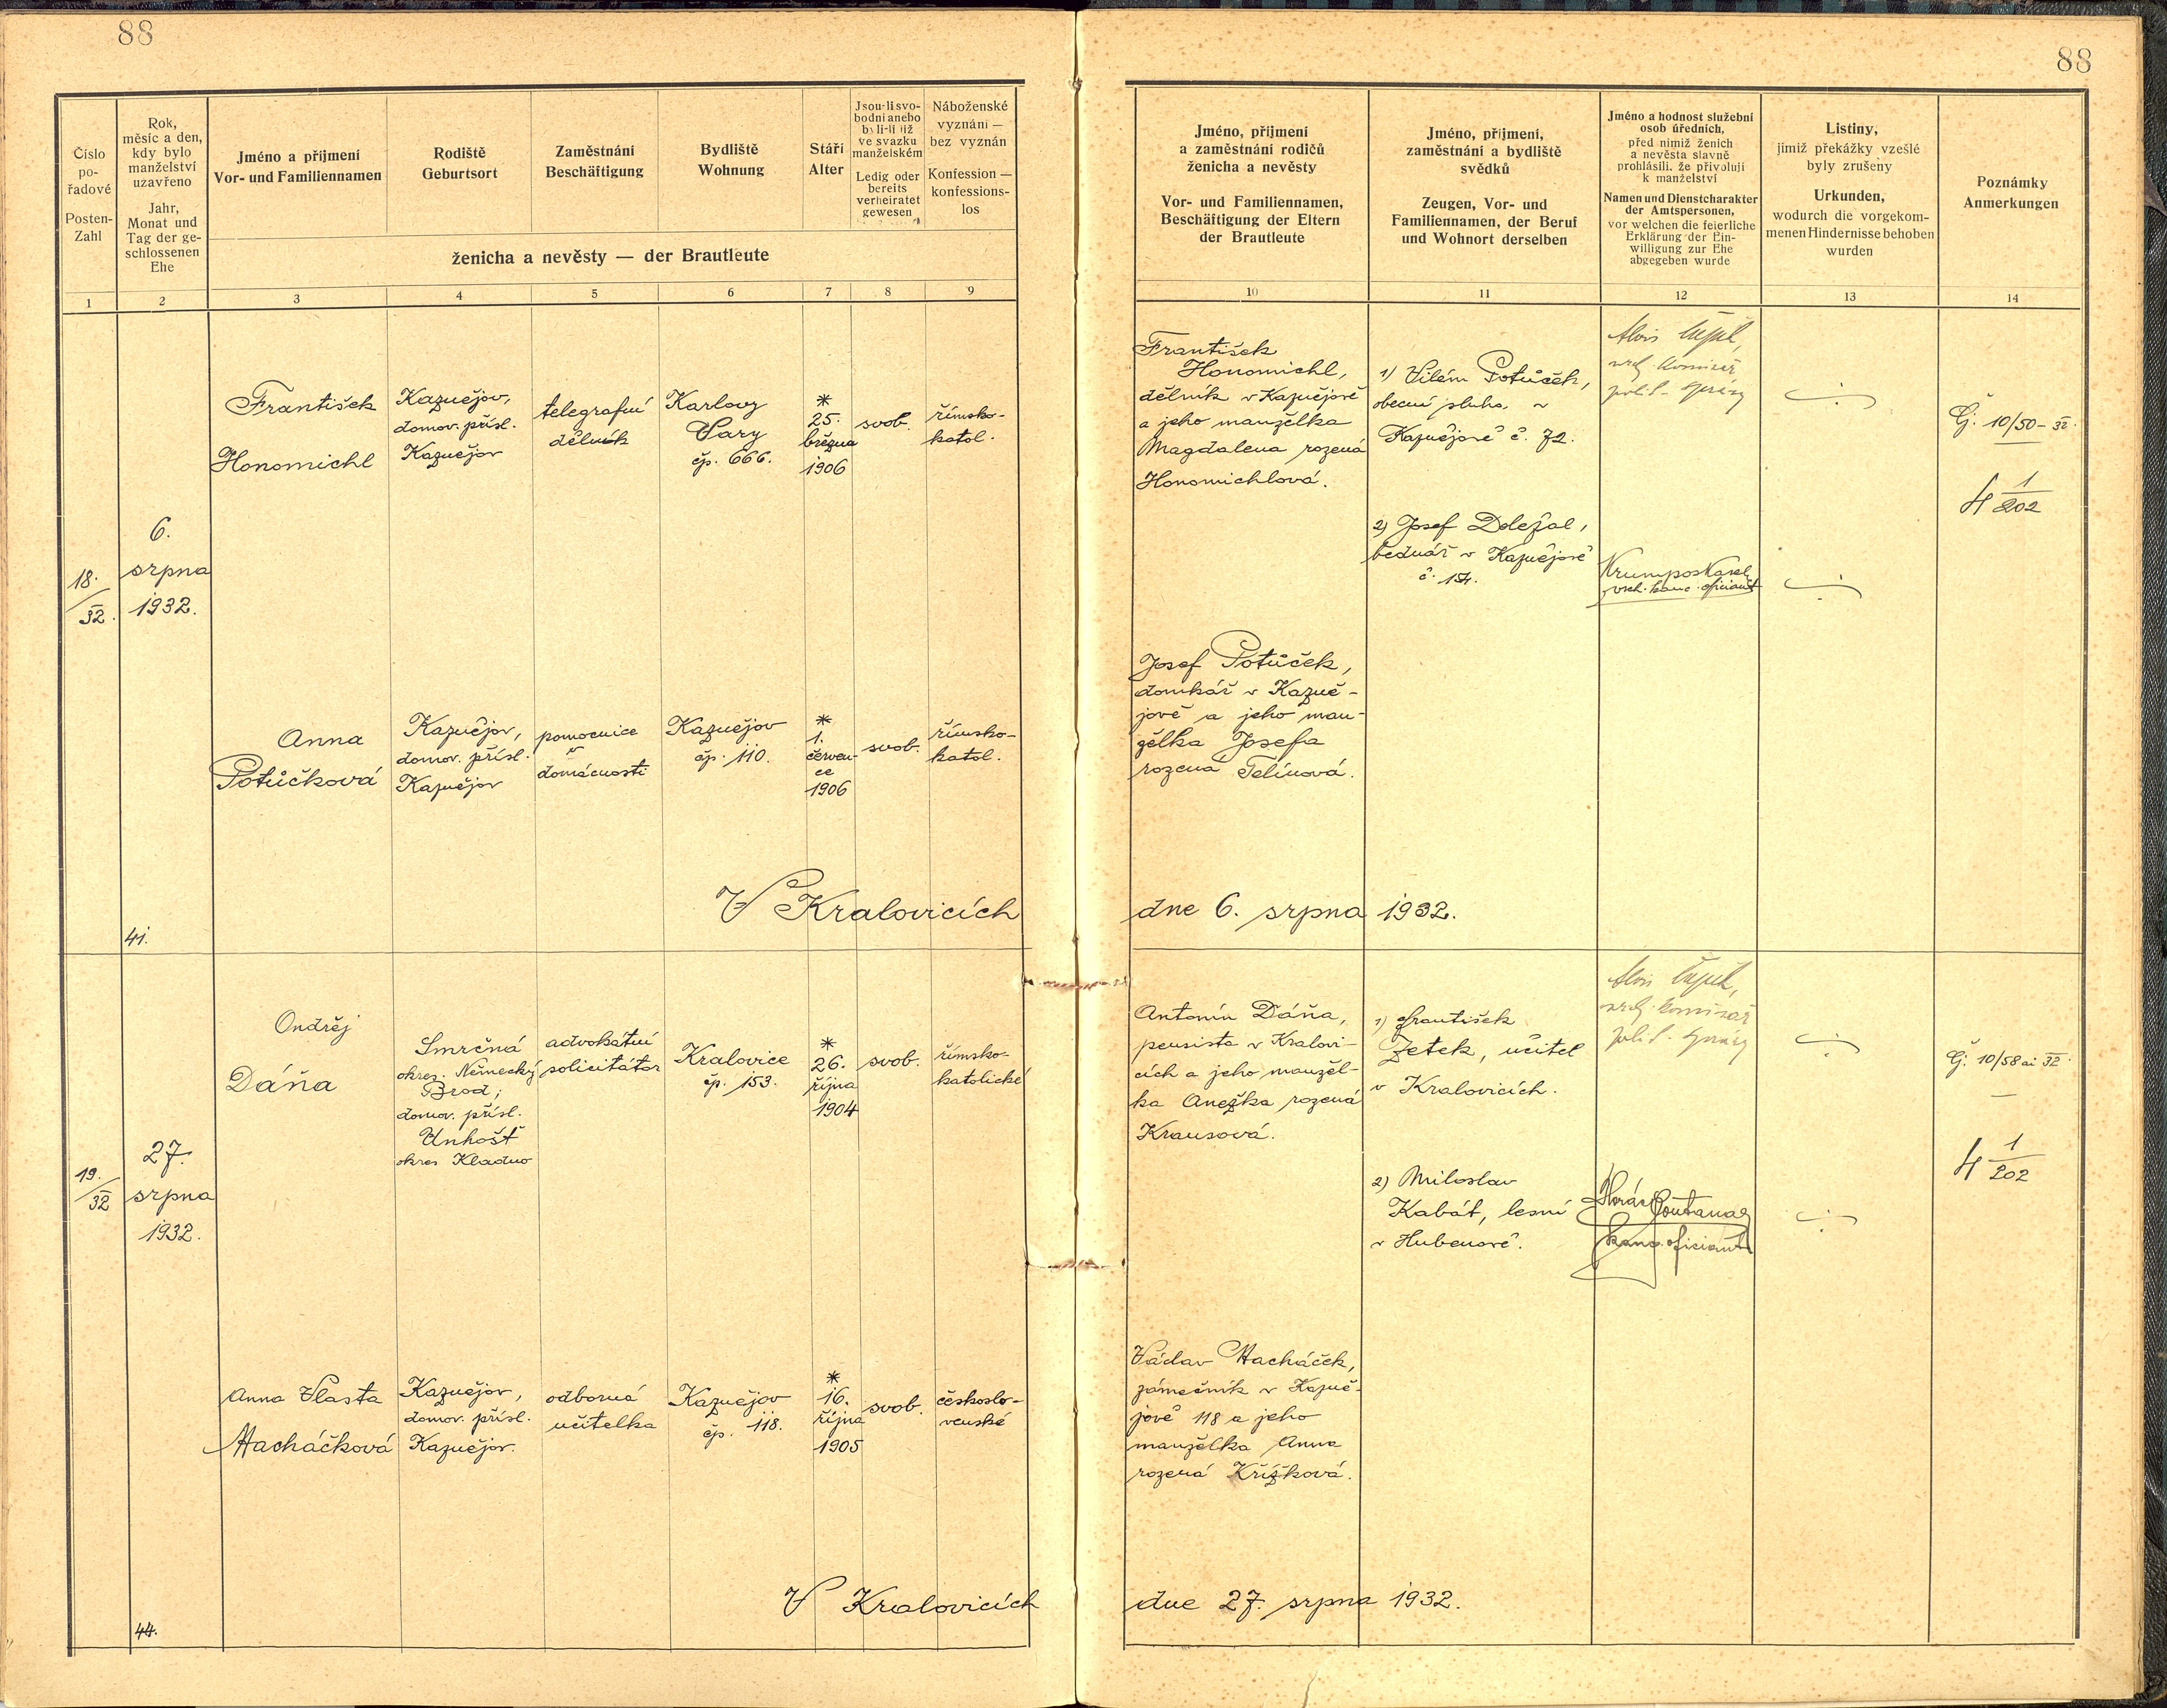 88
88
Číslo
po-
řadové
Posten-
Zahl
Rok,
měsíc a den,
kdy bylo
manželství
uzavřeno
Jahr,
Monat und
Tag der ge-
schlossenen
Ehe
Jméno a příjmení
Vor- und Familiennamen
Rodiště
Geburtsort
Zaměstnání
Beschäftigung
Bydliště
Wohnung
Stáří
Alter
Jsou-li svo-
bodni anebo
byli-li již
ve svazku
manželském
Ledig oder
bereits
verheiratet
gewesen
Náboženské
vyznání —
bez vyznán
Konfession —
konfessions-
los
ženicha a nevěsty — der Brautleute
1 2 3 4 5 6 7 8 9
Jméno, příjmení
a zaměstnání rodičů
ženicha a nevěsty
Vor- und Familiennamen,
Beschäftigung der Eltern
der Brautleute
Jméno, příjmení,
zaměstnání a bydliště
svědků
Zeugen, Vor- und
Familiennamen, der Beruf
und Wohnort derselben
Jméno a hodnost služební
osob úředních,
před nimiž ženich
a nevěsta slavně
prohlásili, že přivolují
k manželství
Namen und Dienstcharakter
der Amtspersonen,
vor welchen die feierliche
Erklärung der Ein-
willigung zur Ehe
abgegeben wurde
Listiny,
jimiž překážky vzešlé
byly zrušeny
Urkunden,
wodurch die vorgekom-
menen Hindernisse behoben
wurden
Poznámky
Anmerkungen
10 11 12 13 14
18.
/32.
6.
srpna
1932.
František
Honomichl
Kaznějov,
domov. přísl.
Kaznějov
telegrafní
dělník
Karlovy
Vary
čp. 666.
*
25.
března
1906
svob.
římsko-
katol.
František
Honomichl,
dělník v Kaznějově
a jeho manželka
Magdalena rozená
Honomichlová.
1) Vilém Potůček,
obecní sluha v
Kaznějově č. 72.
2) Josef Doležal,
bednář v Kaznějově
č. 154.
Alois
polit. správy
Krumpos Karel
kanc. oficiant
Čj. 10/50-32.
1
202
Anna
Potůčková
Kaznějov,
domov. přísl.
Kaznějov
pomocnice
v
domácnosti
Kaznějov
čp. 110.
*
1.
červen-
ce
1906
svob.
římsko-
katol.
Josef Potůček,
domkář v Kazně-
jově a jeho man-
želka Josefa
rozená Telínová.
V Kralovicích
dne 6. srpna 1932.
41.
19.
/32
27.
srpna
1932.
Ondřej
Dáňa
Smrčná
okres. Německý
Brod;
domov. přísl.
Unhošť
okres Kladno
advokátní
solicitátor
Kralovice
čp. 153.
*
26.
října
1904
svob.
římsko-
katolické
Antonín Dáňa,
pensista v Kralovi-
cích a jeho manžel-
ka Anežka rozená
Krausová.
1) František
Zetek, učitel
v Kralovicích.
2) Miloslav
Kabát, lesní
v Hubenově.
Alois
polit. správy
kanc. oficiant
Čj. 10/58 ai 32.
1
202
Anna Vlasta
Macháčková
Kaznějov,
domov. přísl.
Kaznějov.
odborná
učitelka
Kaznějov
čp. 118.
*
16.
října
1905
svob.
českoslo-
venské
Václav Macháček,
zámečník v Kazně-
jově 118 a jeho
manželka Anna
rozená Křížková.
V Kralovicích
dne 27. srpna 1932.
44.